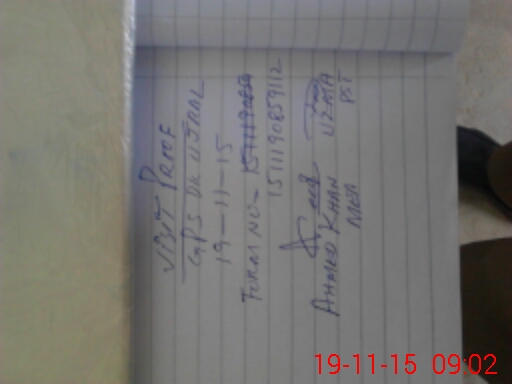 VISIT PROOF
GPS DK UJRAL
19-11-15
FORM NO- 
1511190859112
AHMED KHAN UZMA
MEA PST
19-11-15 09:02